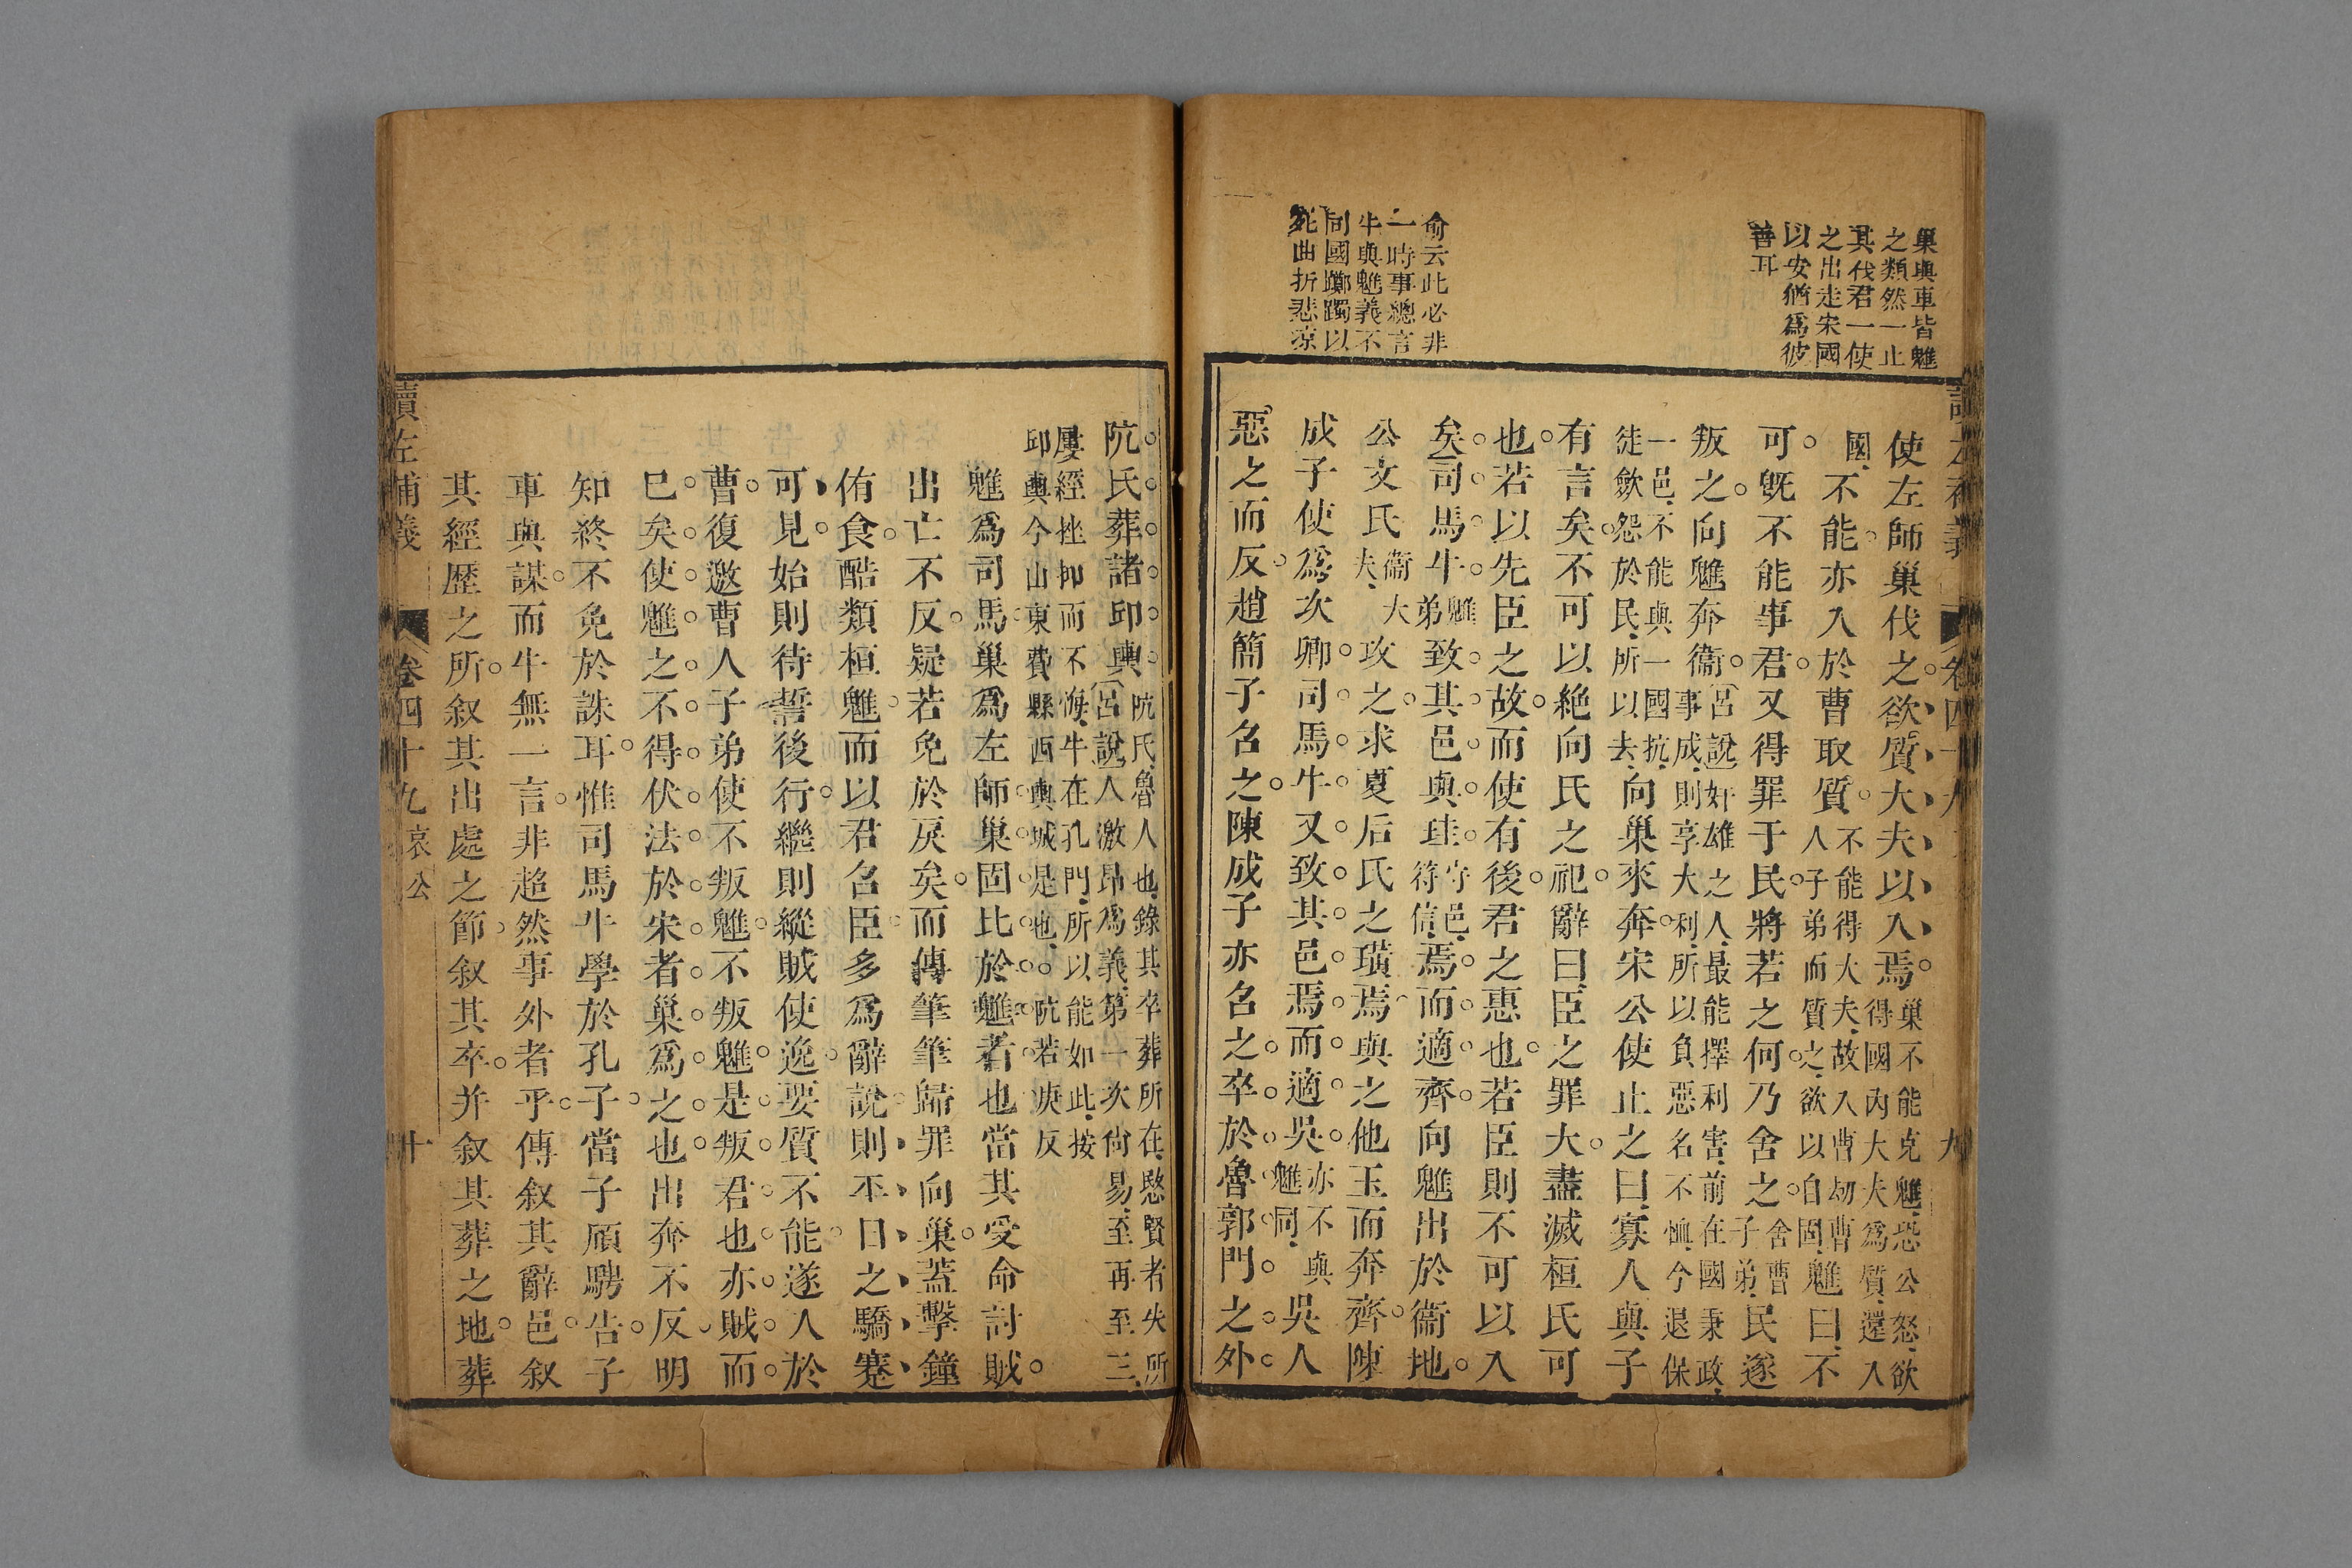 巢與車皆魋
之類然一止
其伐君一使
之出走宋國
以安猶爲彼
善耳
俞云此必非
一時事總言
牛與魋義不
同國躑躅以
死曲折悲凉
使左師巢伐之欲質大夫以入焉巢不能克魋恐公怒欲得國內大夫爲質還入
國不能亦入於曹取質不能得大夫故入曹劫曹人子弟而質之欲以自固魋曰不
可既不能事君又得罪于民將若之何乃舍之舍曹子弟民遂
叛之向魋奔衞呂說奸雄之人最能擇利害前在國秉政事成則享大利所以負惡名不恤今退保
一邑不能與一國抗徒歛怨於民所以去向巢來奔宋公使止之曰寡人與子
有言矣不可以絶向氏之祀辭曰臣之罪大盡滅桓氏可
也若以先臣之故而使有後君之惠也若臣則不可以入
矣司馬牛魋弟致其邑與珪守邑符信焉而適齊向魋出於衞地
公文氏衞大夫攻之求夏后氏之璜焉與之他玉而奔齊陳
成子使爲次卿司馬牛又致其邑焉而適吳亦不與魋同吳人
惡之而反趙簡子召之陳成子亦召之卒於魯郭門之外
阬氏葬諸邱輿阬氏魯人也錄其卒葬所在愍賢者失所呂說人激昂爲義第一次尙易至再至三
屢經挫抑而不悔牛在孔門所以能如此按邱輿今山東費縣西輿城是也阬若庚反
魋爲司馬巢爲左師巢固比於魋者也當其受命討賊
出亡不反疑若免於戾矣而傳筆筆歸罪向巢蓋擊鐘
侑食酷類桓魋而以君召臣多爲辭說則平日之驕蹇
可見始則待誓後行繼則縱賊使逸要質不能遂入於
曹復邀曹人子弟使不叛魋不叛魋是叛君也亦賊而
已矣使魋之不得伏法於宋者巢爲之也出奔不反明
知終不免於誅耳惟司馬牛學於孔子當子頎騁告子
車與謀而牛無一言非超然事外者乎傳叙其辭邑叙
其經歷之所叙其出處之節叙其卒并叙其葬之地葬
讀左補義 卷四十九 哀公 十